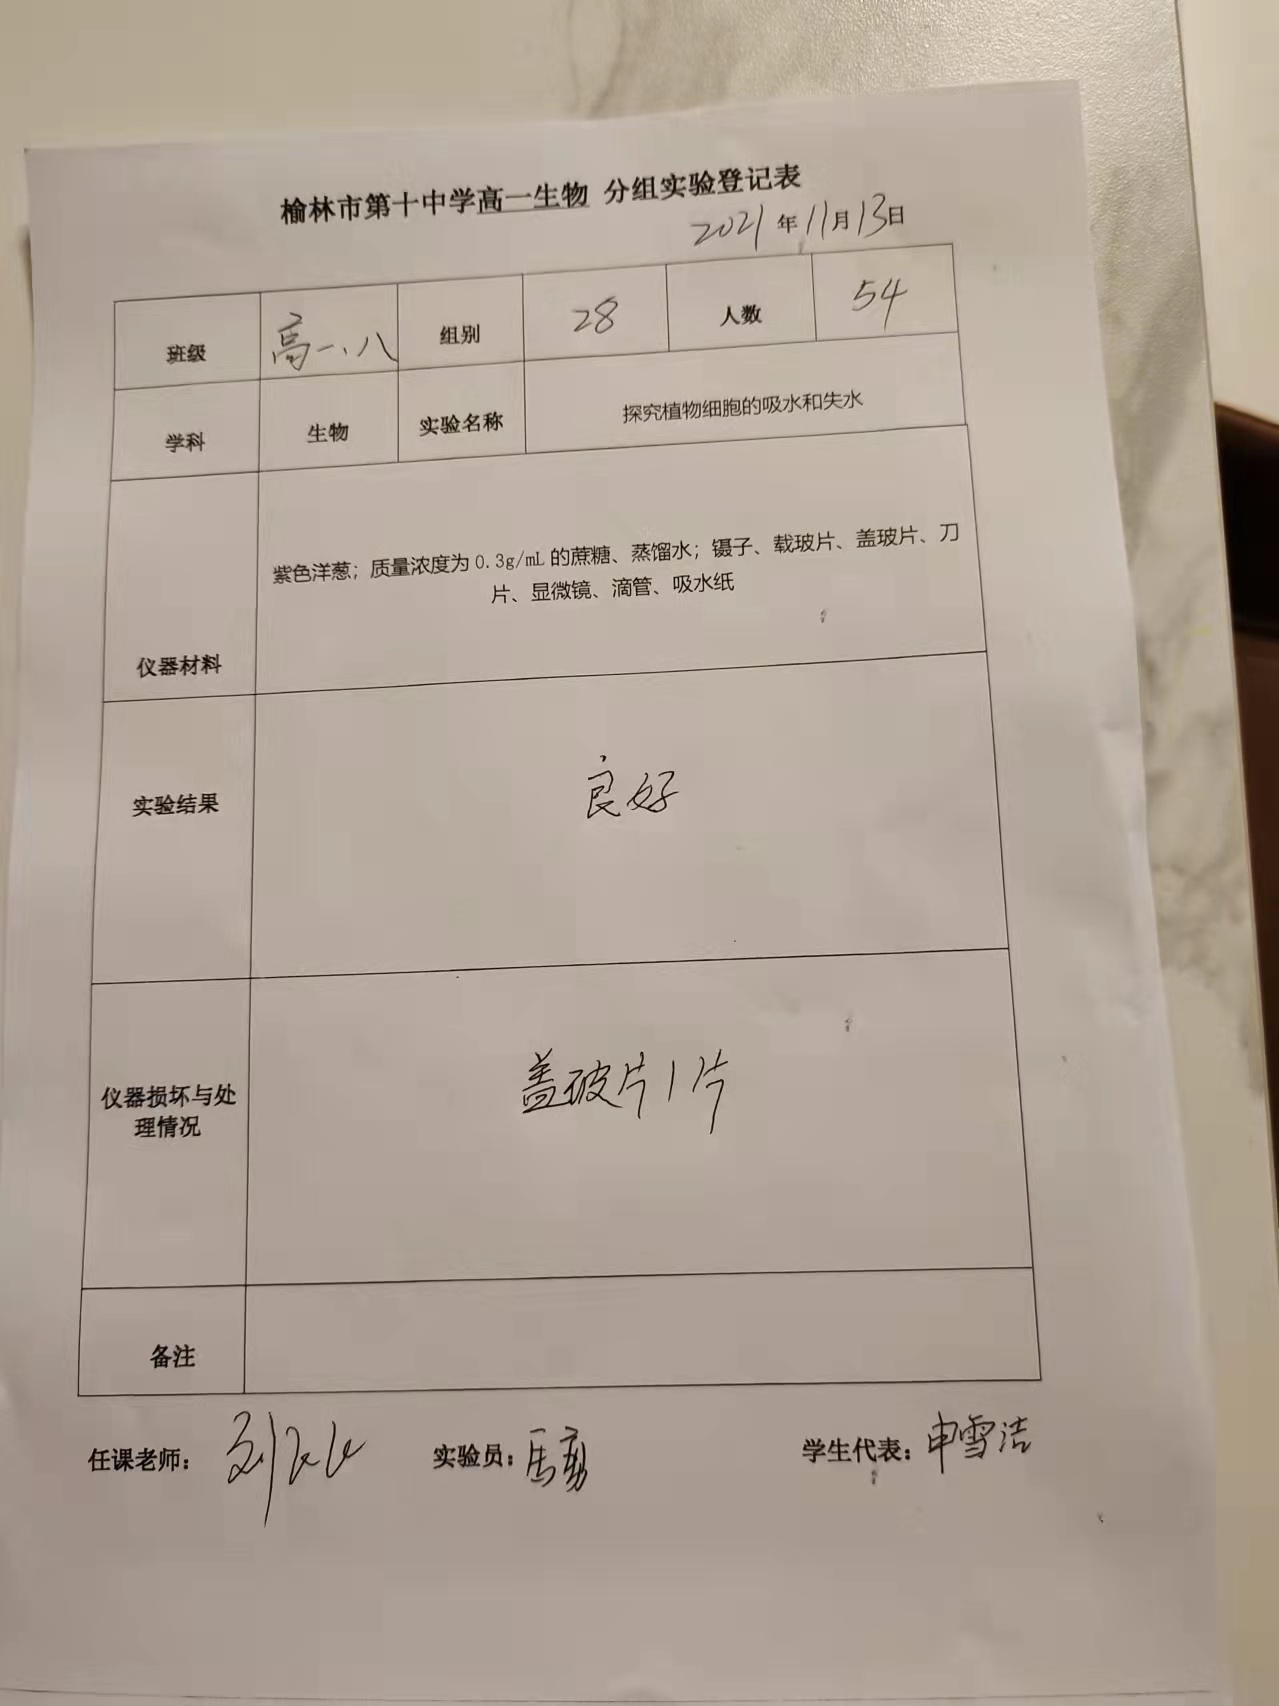 榆林市第十中学高一生物 分组实验登记表
2021 年 11 月 13 日
班级 高一、八 组别 28 人数 54
学科 生物 实验名称 探究植物细胞的吸水和失水
紫色洋葱；质量浓度为 0.3g/mL 的蔗糖、蒸馏水；镊子、载玻片、盖玻片、刀
片、显微镜、滴管、吸水纸
仪器材料
实验结果 良好
仪器损坏与处
理情况
盖玻片1片
备注
任课老师： 刘 实验员： 马 学生代表： 申雪洁